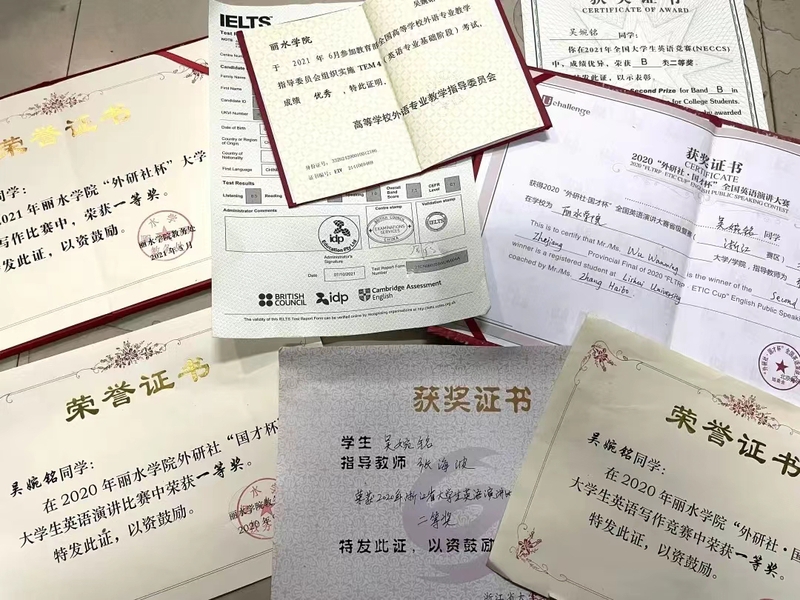 荣誉证书
同学:
2021年丽水学院“外研社杯”大学
写作比赛中，荣获一等奖。
发此证，以资鼓励。
丽水学院教务处
2021年 月
IELTS
Test Results
Listening
Reading
Administrator Comments
Centre stamp
Validation stamp
idp
BRITISH COUNCIL
IELTS
Administrator's
Signature
Date
07/10/2021
Test Report Form
BRITISH COUNCIL
idp
Cambridge Assessment
English
The validity of this IELTS Test Report Form can be verified online by recognising organisations at
Family Name
First Name
Candidate ID
Date of Birth
Country of
Nationality
First Language
CEFR
Level
丽水学院
于 2021 年 6月参加教育部全国高等学校外语专业教学
指导委员会组织实施 TEM4（英语专业基础阶段）考试,
成绩 优秀，特此证明。
高等学校外语专业教学指导委员会
身份证号:
证书编号:
获奖证书
CERTIFICATE OF AWARD
吴婉铭 同学:
你在2021年全国大学生英语竞赛(NECCS)
中，成绩优异，荣获 B 类二等奖。
特发此证，以示表彰。
Second Prize for Band B in
for College Students.
be awarded
Uchallenge
获奖证书
CERTIFICATE
2020 “外研社·国才杯” 全国英语演讲大赛
2020 "FLTRP · ETIC CUP" ENGLISH PUBLIC SPEAKING CONTEST
吴婉铭 同学
获得2020 “外研社·国才杯” 全国英语演讲大赛省级复赛
浙江 赛区
在学校为 丽水学院
大学/学院，指导教师为
This is to certify that Mr./Ms. Wu Wanming is the winner of the Second
Zhejiang Provincial Final of 2020 "FLTRP · ETIC Cup" English Public Speaking
winner is a registered student at Lishui University
coached by Mr./Ms. Zhang Haibo
荣誉证书
吴婉铭同学:
在2020年丽水学院外研社“国才杯”
大学生英语演讲比赛中荣获一等奖。
特发此证，以资鼓励。
丽水学院教
2020年
获奖证书
学生 吴婉铭
指导教师 张海波
荣获2020年浙江省大学生英语演讲
二等奖
特发此证，以资鼓励
浙江省大
荣誉证书
吴婉铭同学:
在2020年丽水学院“外研社·国
大学生英语写作竞赛中荣获一等奖。
特发此证，以资鼓励。